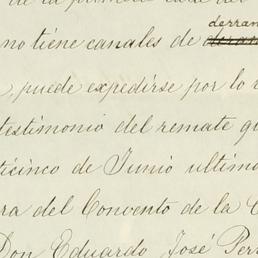 de la primera casa del
derran
no tiene canales de
, puede expedirse por lo
testimonio del remate qu
ticinco de Junio ultimo
ra del Convento de la C
Don Eduardo José Per